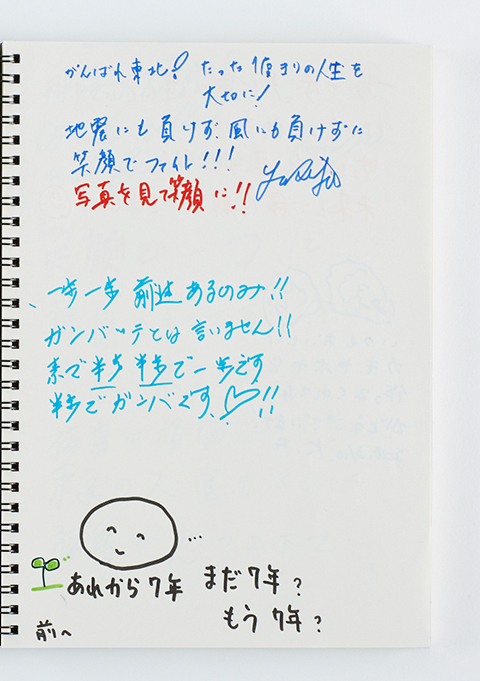 がんばれ東北! たった1度きりの人生を
大切に!
地震にも負けず、風にも負けずに
笑顔でファイト!!!
写真を見て笑顔に!!
一歩一歩 前進あるのみ!!
ガンバッテとは言いません!!
半歩 半歩で一歩です
半歩でガンバです、♡!!
…
あれから7年 まだ7年?
もう7年?
前へ